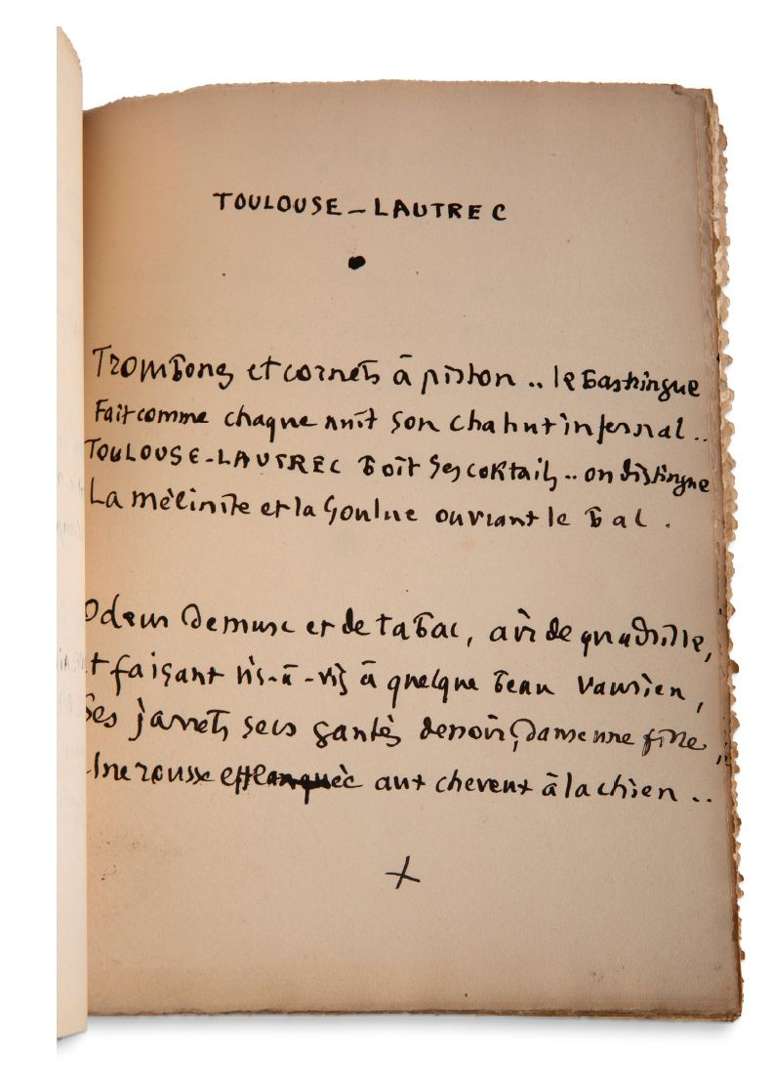 TOULOUSE-LAUTREC
Trombones et cornets à piston .. le bastringue
Fait comme chaque nuit son chahut infernal ..
TOULOUSE-LAUTREC boit ses coktails .. on distingue
La mélinite et la Goulue ouvrant le bal .
Odeur de musc et de tabac, air de quadrille,
Et faisant vis-à-vis à quelque beau vaurien,
Ses jarrets secs gantés de noir, danse une fille,
Une rousse efflanquée aux cheveux à la chien ..